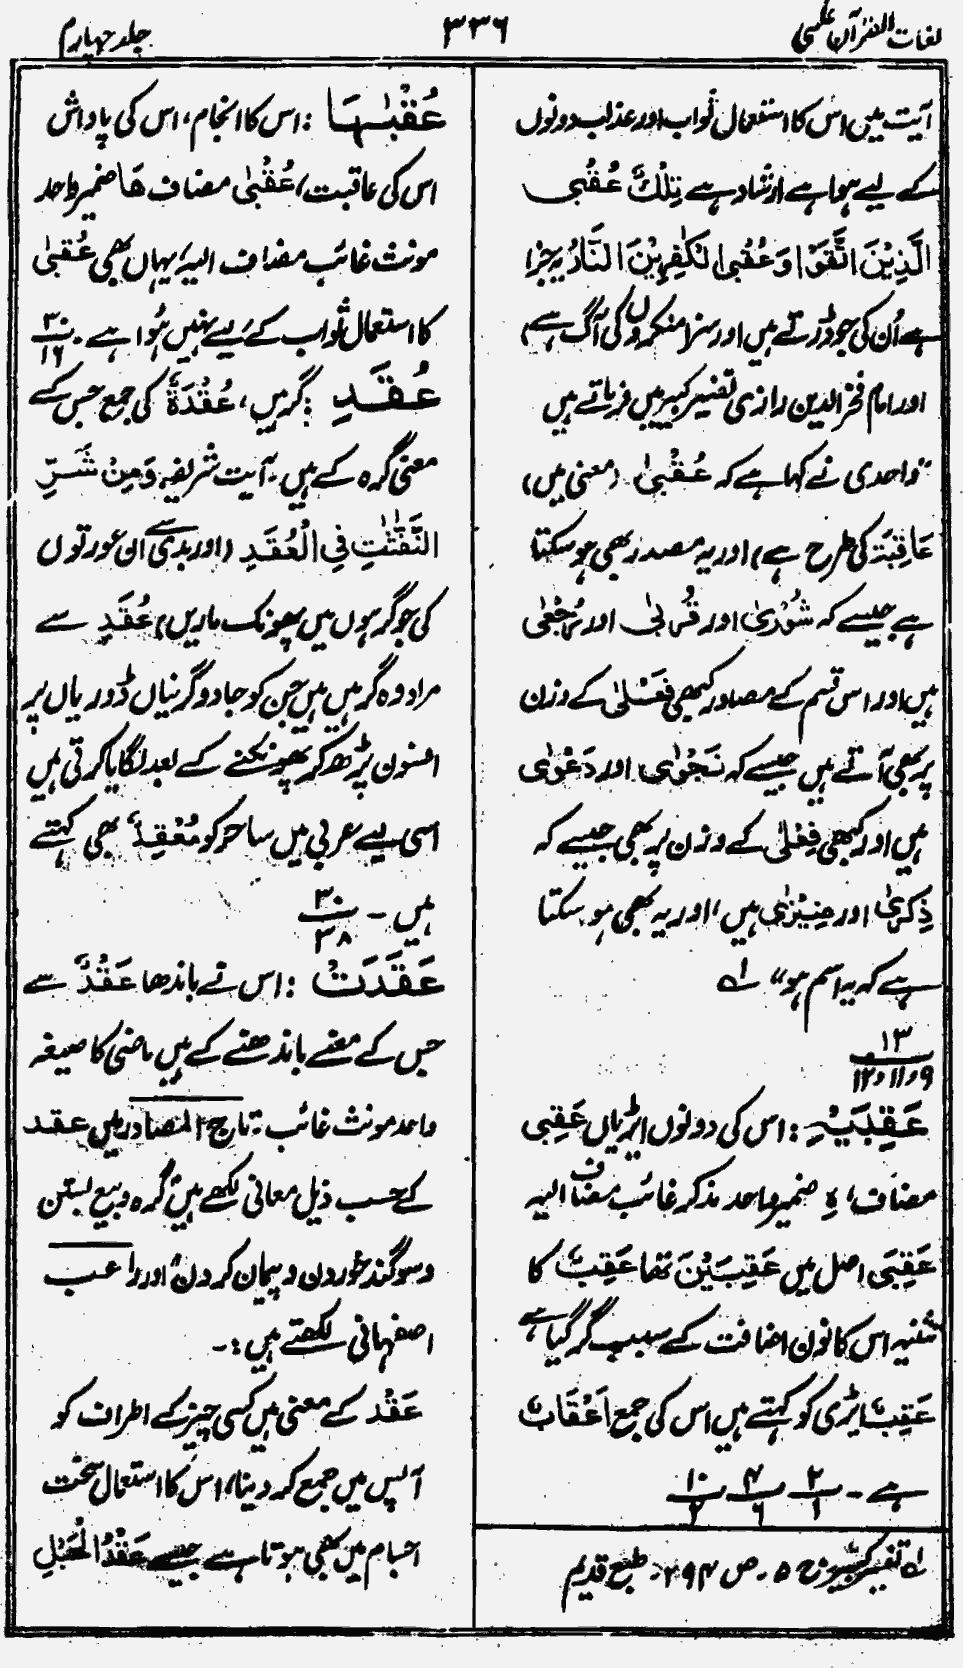 لغات القرآن علمی
۳۳۶
جلد چہارم
آیت میں اس کا استعمال ثواب اور عذاب دونوں
کے لیے ہوا ہے ارشاد ہے تِلْكَ عُقْبَى
الَّذِيْنَ اتَّقَوْا وَعُقْبَى الْكٰفِرِيْنَ النَّارُ یہ جزا
ہے اُن کی جو ڈرتے ہیں اور سزا منکروں کی آگ ہے،
اور امام فخر الدین رازی تفسیر کبیر میں فرماتے ہیں
”واحدی نے کہا ہے کہ عُقْبىٰ (معنی میں)
عَاقِبَة کی طرح ہے، اور یہ مصدر بھی ہو سکتا
ہے جیسے کہ شُوْرىٰ اور قُربىٰ اور رُجْعىٰ
ہیں، اور اس قسم کے مصادر کبھی فَعْلىٰ کے وزن
پر بھی آتے ہیں جیسے کہ نَجْوٰى اور دَعْوٰى
ہیں اور کبھی فِعْلىٰ کے وزن پر بھی جیسے کہ
ذِكْرىٰ اور ضِيْزٰى ہیں، اور یہ بھی ہو سکتا
ہے کہ یہ اسم ہو“ لہ
۱۳
۹، ۱۱، ۱۲
عَقِبَيْهِ : اس کی دونوں ایڑیاں عَقِبَى
مضاف، ہٖ ضمیر واحد مذکر غائب مضاف الیہ
عَقِبَى اصل میں عَقِبَيْنَ تھا عَقِبٌ کا
تثنیہ اس کا نون اضافت کے سبب گر گیا ہے
عَقِبٌ ایڑی کو کہتے ہیں اس کی جمع اَعْقَابٌ
ہے ۔ ۲/۱ ۴/۶ ۱۰/۲
لہ تفسیر کبیر ج ۵ ۔ ص ۲۹۴ ۔ طبع قدیم
عُقْبٰهَا : اس کا انجام، اس کی پاداش
اس کی عاقبت، عُقْبىٰ مضاف هَا ضمیر واحد
مونث غائب مضاف الیہ، یہاں بھی عُقبىٰ
کا استعمال ثواب کے لیے نہیں ہُوا ہے ۔ ۳۰/۱۶
عُقَدِ : گرہیں، عُقْدَةٌ کی جمع جس کے
معنی گرہ کے ہیں ۔ آیت شریفہ وَمِنْ شَرِّ
النَّفّٰثٰتِ فِی الْعُقَدِ (اور بدی سے ان عورتوں
کی جو گرہوں میں پھونک ماریں) عُقَدِ سے
مراد وہ گرہیں ہیں جن کو جادوگرنیاں ڈوریاں پر
افسون پڑھ کر پھونکنے کے بعد لگایا کرتی ہیں
اسی لیے عربی میں ساحر کو مُعْقِدٌ بھی کہتے
ہیں ۔ ۳۰/۳۸
عَقَدَتْ : اس نے باندھا عَقْدٌ سے
جس کے معنے باندھنے کے ہیں ماضی کا صیغہ
واحد مونث غائب، تاج المصادر میں عقد
کے حسب ذیل معانی لکھے ہیں ”گرہ و بیع بستن
و سوگند خوردن و پیمان کردن“ اور راغب
اصفہانی لکھتے ہیں :۔
عَقْد کے معنی ہیں کسی چیز کے اطراف کو
آپس میں جمع کر دینا، اس کا استعمال سخت
اجسام میں بھی ہوتا ہے جیسے عَقْدُ الْحَبْلِ